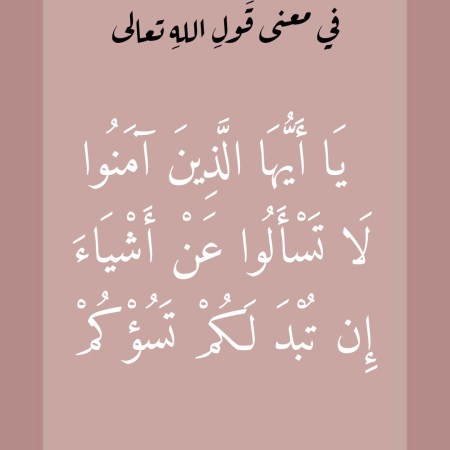 في معنى قَولِ اللهِ تعالى
يَا أَيُّهَا الَّذِينَ آمَنُوا
لَا تَسْأَلُوا عَنْ أَشْيَاءَ
إِن تُبْدَ لَكُمْ تَسُؤْكُمْ